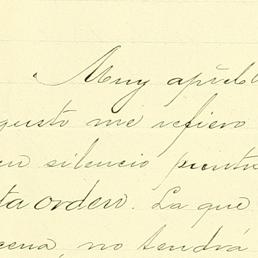 Muy apble
gusto me refiero
en silencio puntu
ta orden. La que
cena, no tendrá